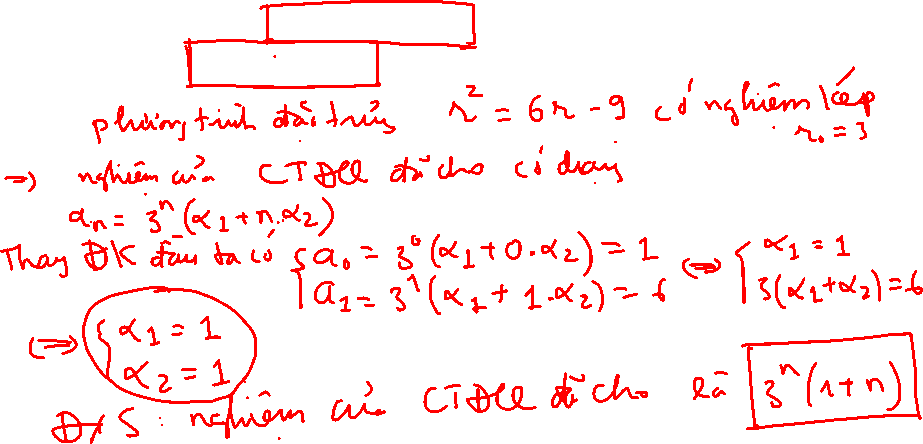 phương trình đặc trưng r² = 6r - 9 có nghiệm kép
r₀ = 3
=> nghiệm của CTĐQ đã cho có dạng
aₙ = 3ⁿ(α₁ + n.α₂)
Thay ĐK đầu ta có { a₀ = 3⁰(α₁ + 0.α₂) = 1 <=> { α₁ = 1
a₁ = 3¹(α₁ + 1.α₂) = 6 3(α₁ + α₂) = 6
<=> { α₁ = 1
α₂ = 1
Đ/S : nghiệm của CTĐQ đã cho là 3ⁿ(1+n)